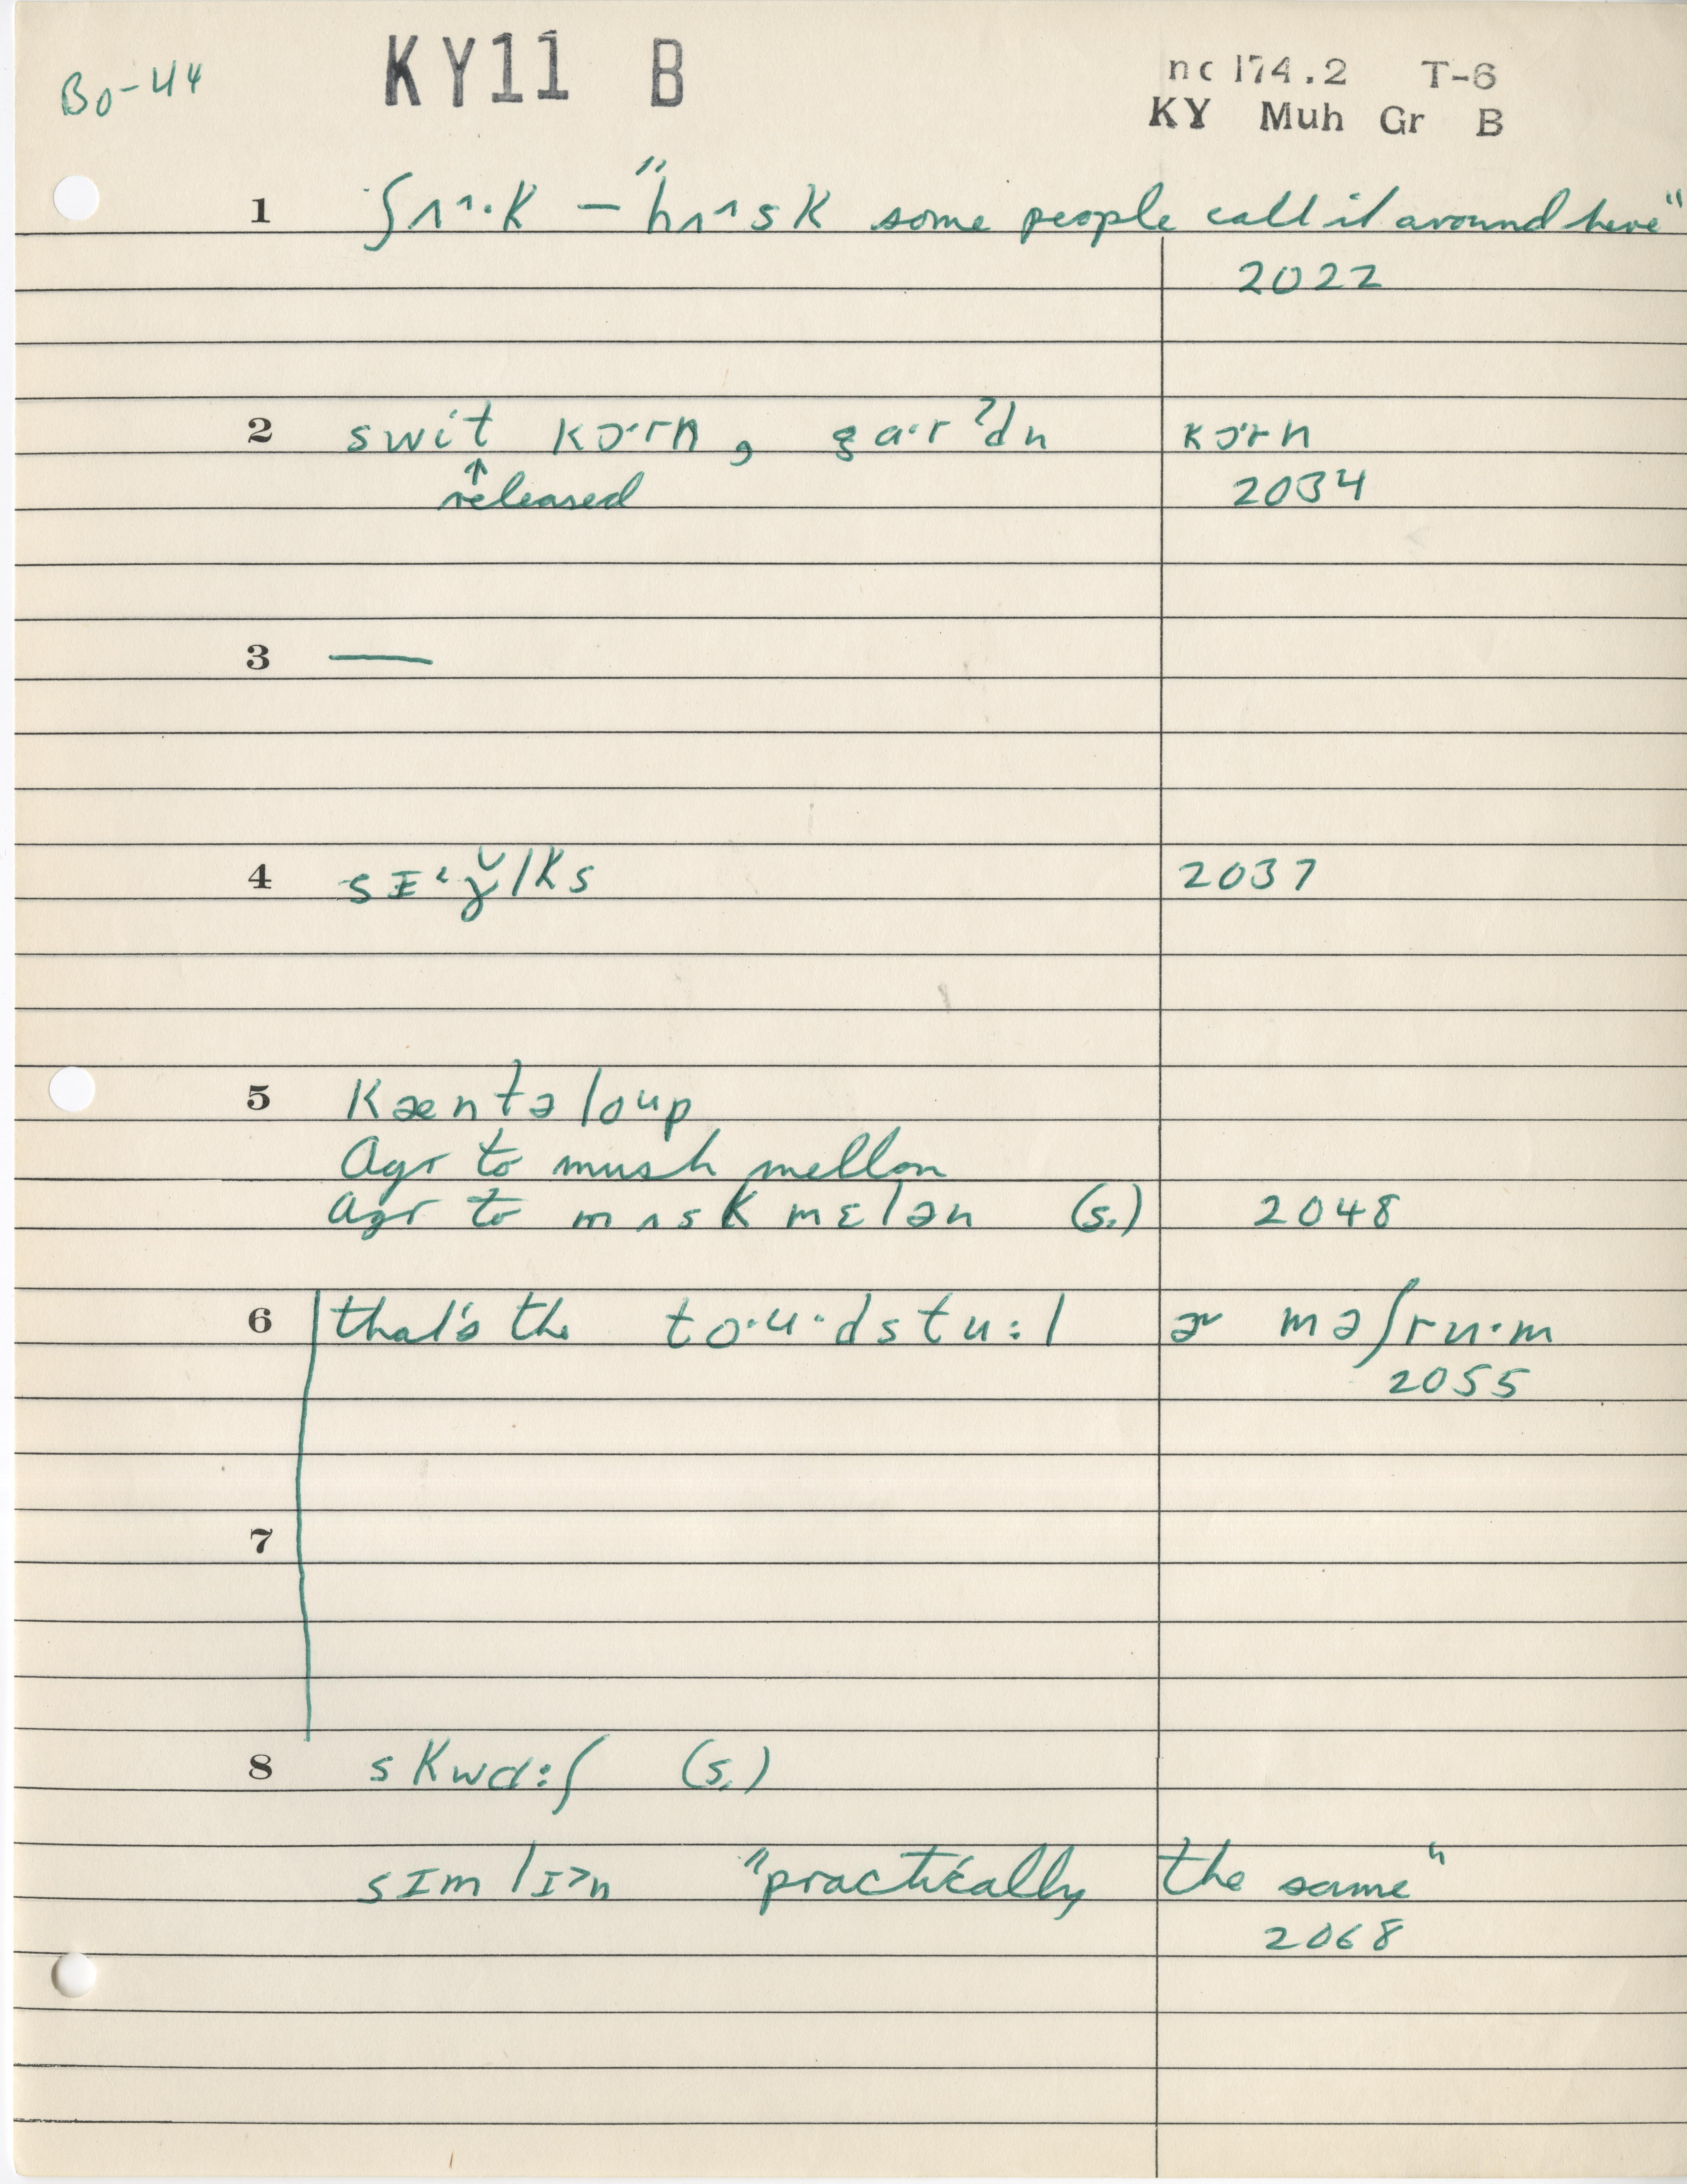 Bo-44 KY11 B nc 174.2 T-6
KY Muh Gr B
1 ʃʌ^·k – "hʌ^sk some people call it around here"
2022
2 swit kɔ·rn, ga·r ʔdn kɔ·rn
↑ released 2034
3 —
4 2037
5 kæntəloup
Agr to mush mellon
Agr to mʌskmɛlən (s.) 2048
6 that's the to·u·dstu:l ɚ məʃru·m
2055
7
8 skwɑ:ʃ (s.)
sɪmlɪ>n "practically the same"
2068